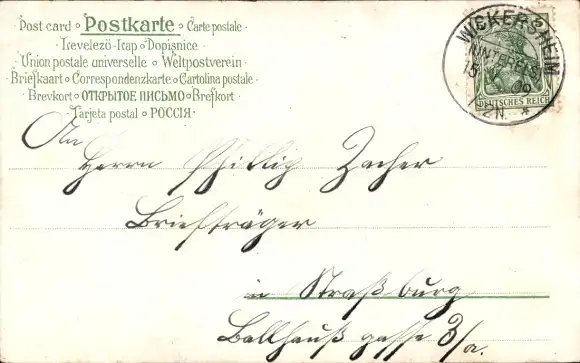 Post card ◦ Postkarte ◦ Carte postale ·
· Levelezö-Lap ◦ Dopisnice ·
· Union postale universelle ◦ Weltpostverein ·
· Briefkaart ◦ Correspondenzkarte ◦ Cartolina postale ·
· Brevkort ◦ ОТКРЫТОЕ ПИСЬМО ◦ Brefkort ·
· Tarjeta postal ◦ РОССІЯ ·
WICKERSHEIM
(UNTERELS.)
15
09
2N. *
DEUTSCHES REICH
An
Herrn Phillip Zacher
Briefträger
in Straßburg
Ballhauß gasse 3/a.